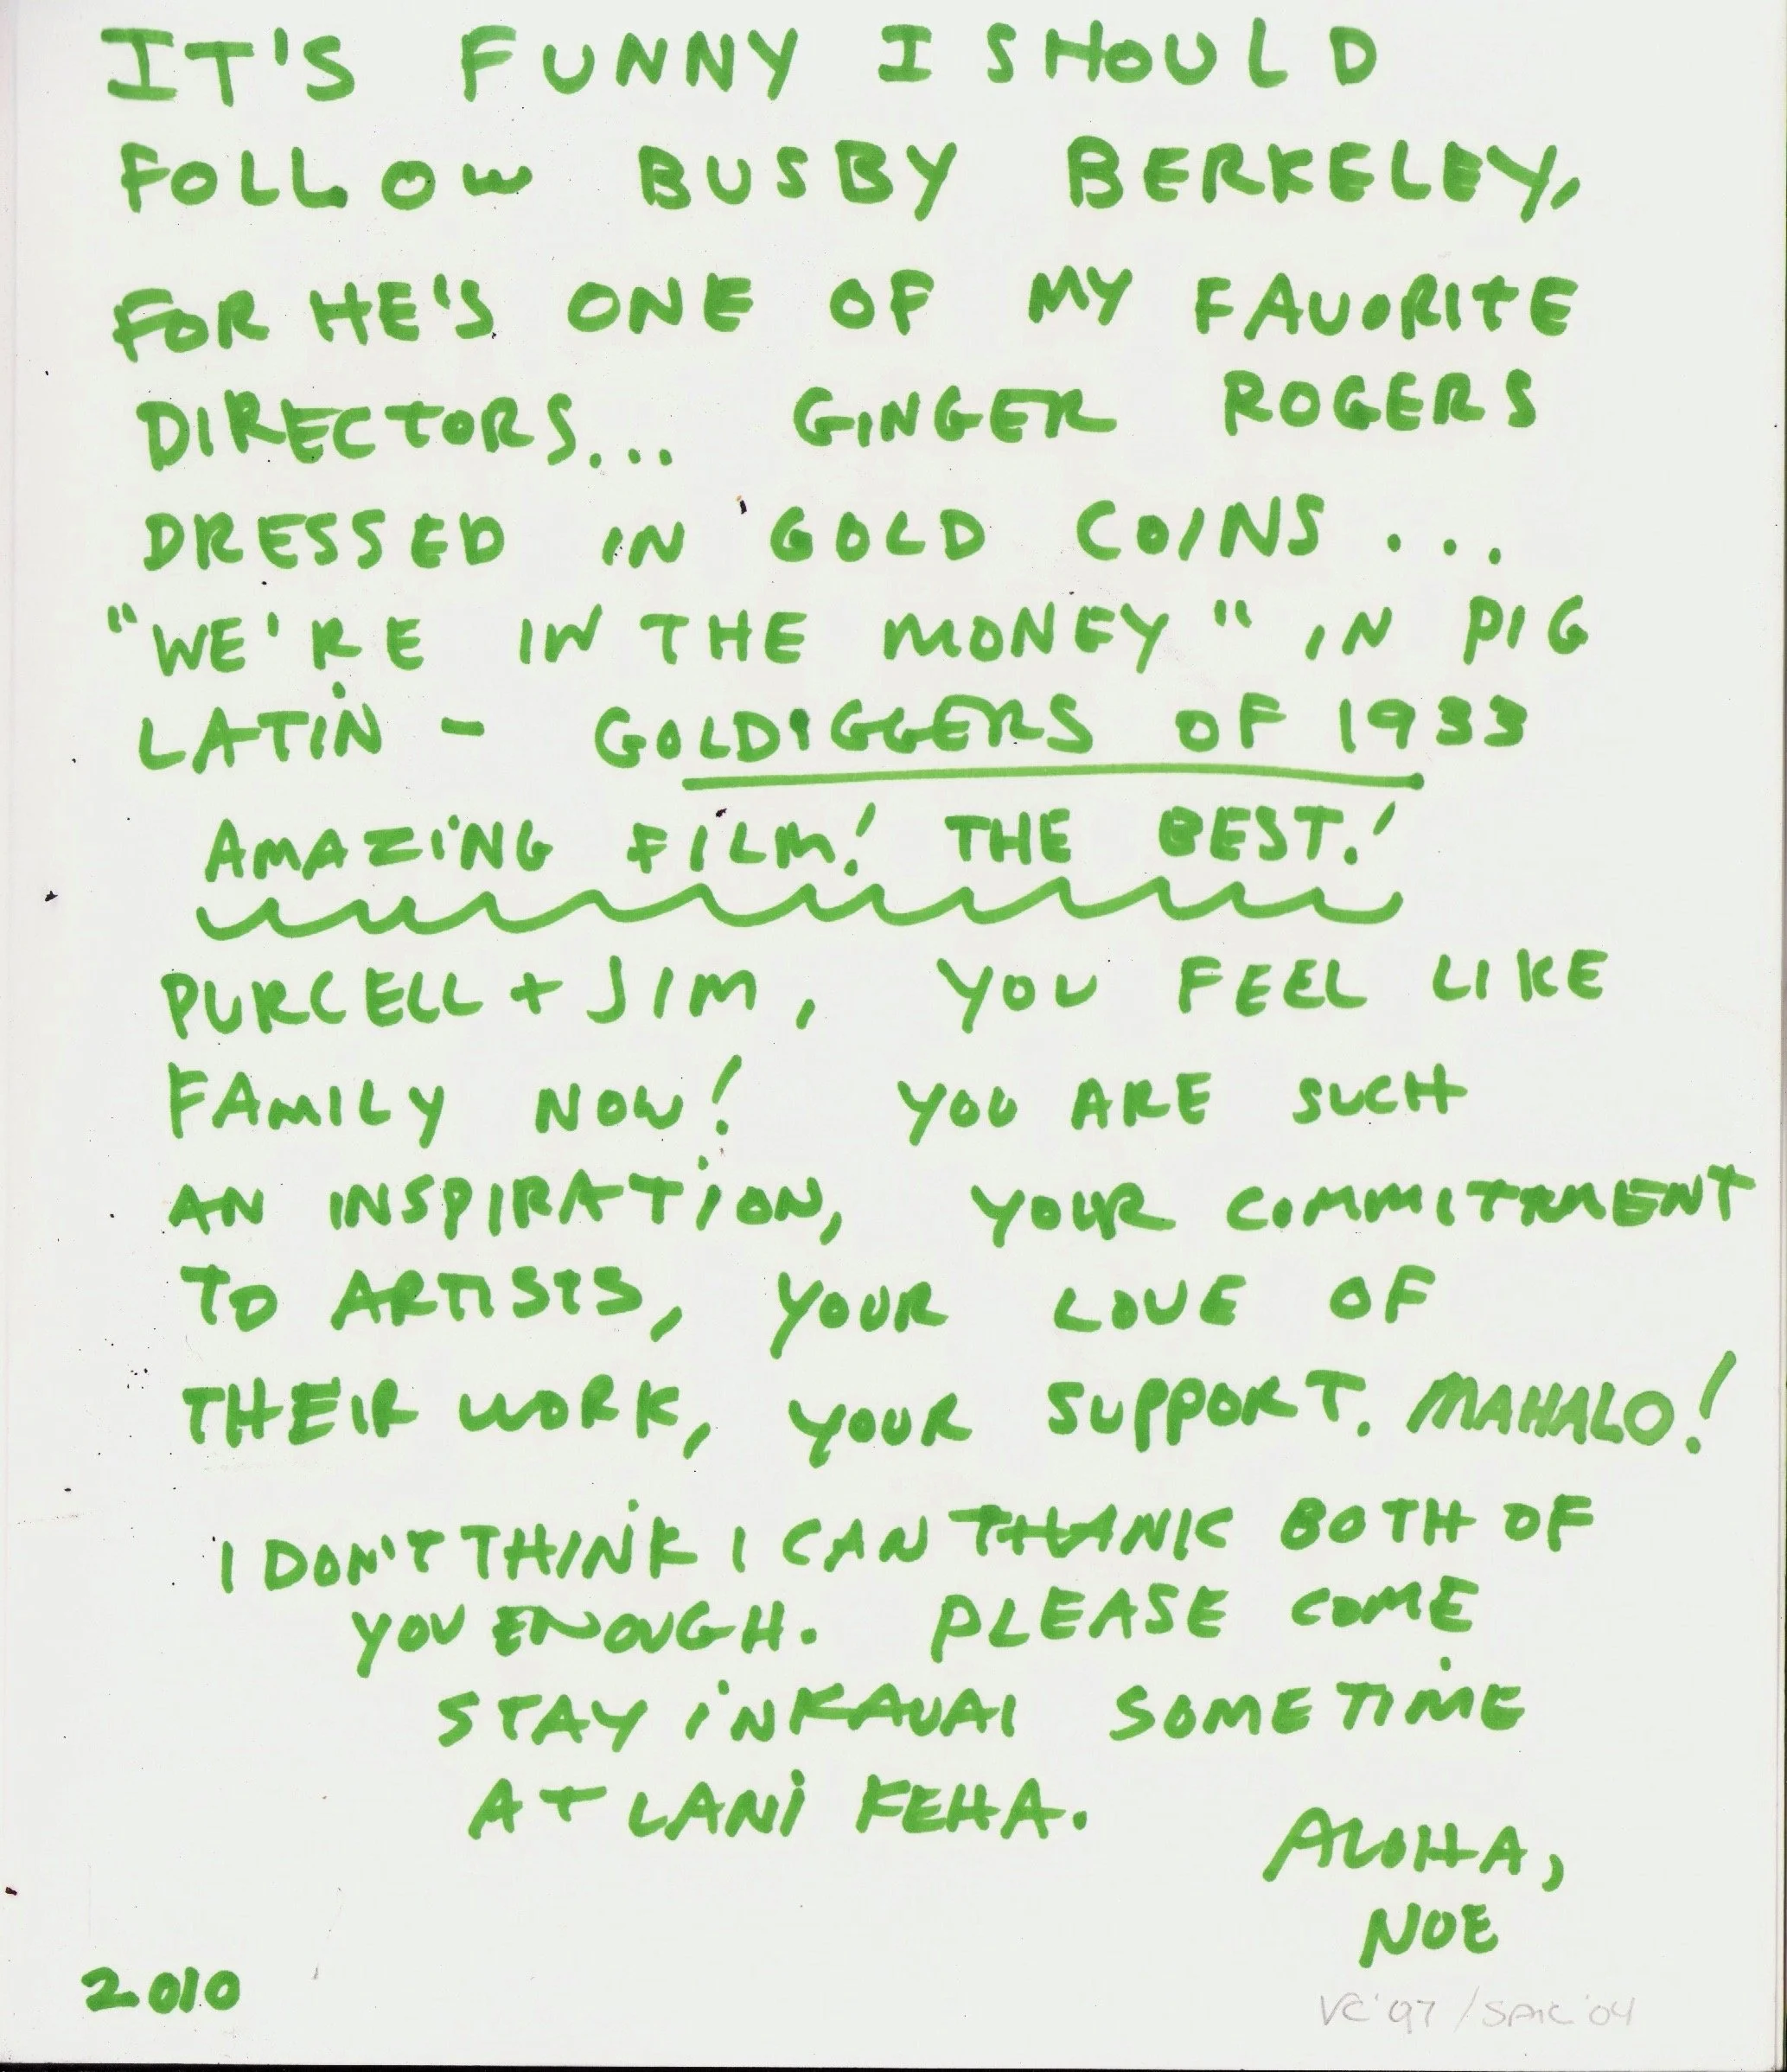 IT'S FUNNY I SHOULD
FOLLOW BUSBY BERKELEY,
FOR HE'S ONE OF MY FAVORITE
DIRECTORS... GINGER ROGERS
DRESSED IN GOLD COINS...
"WE'RE IN THE MONEY" IN PIG
LATIN - GOLDIGGERS OF 1933
AMAZING FILM! THE BEST!
PURCELL + JIM, YOU FEEL LIKE
FAMILY NOW! YOU ARE SUCH
AN INSPIRATION, YOUR COMMITMENT
TO ARTISTS, YOUR LOVE OF
THEIR WORK, YOUR SUPPORT. MAHALO!
I DON'T THINK I CAN THANK BOTH OF
YOU ENOUGH. PLEASE COME
STAY IN KAUAI SOMETIME
AT LANI KEHA.
ALOHA,
NOE
2010
VC '97 / SAIC '04